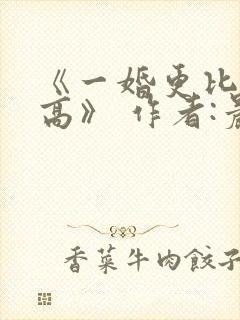 《一婚更比
高》 作者:
香菜牛肉餃子